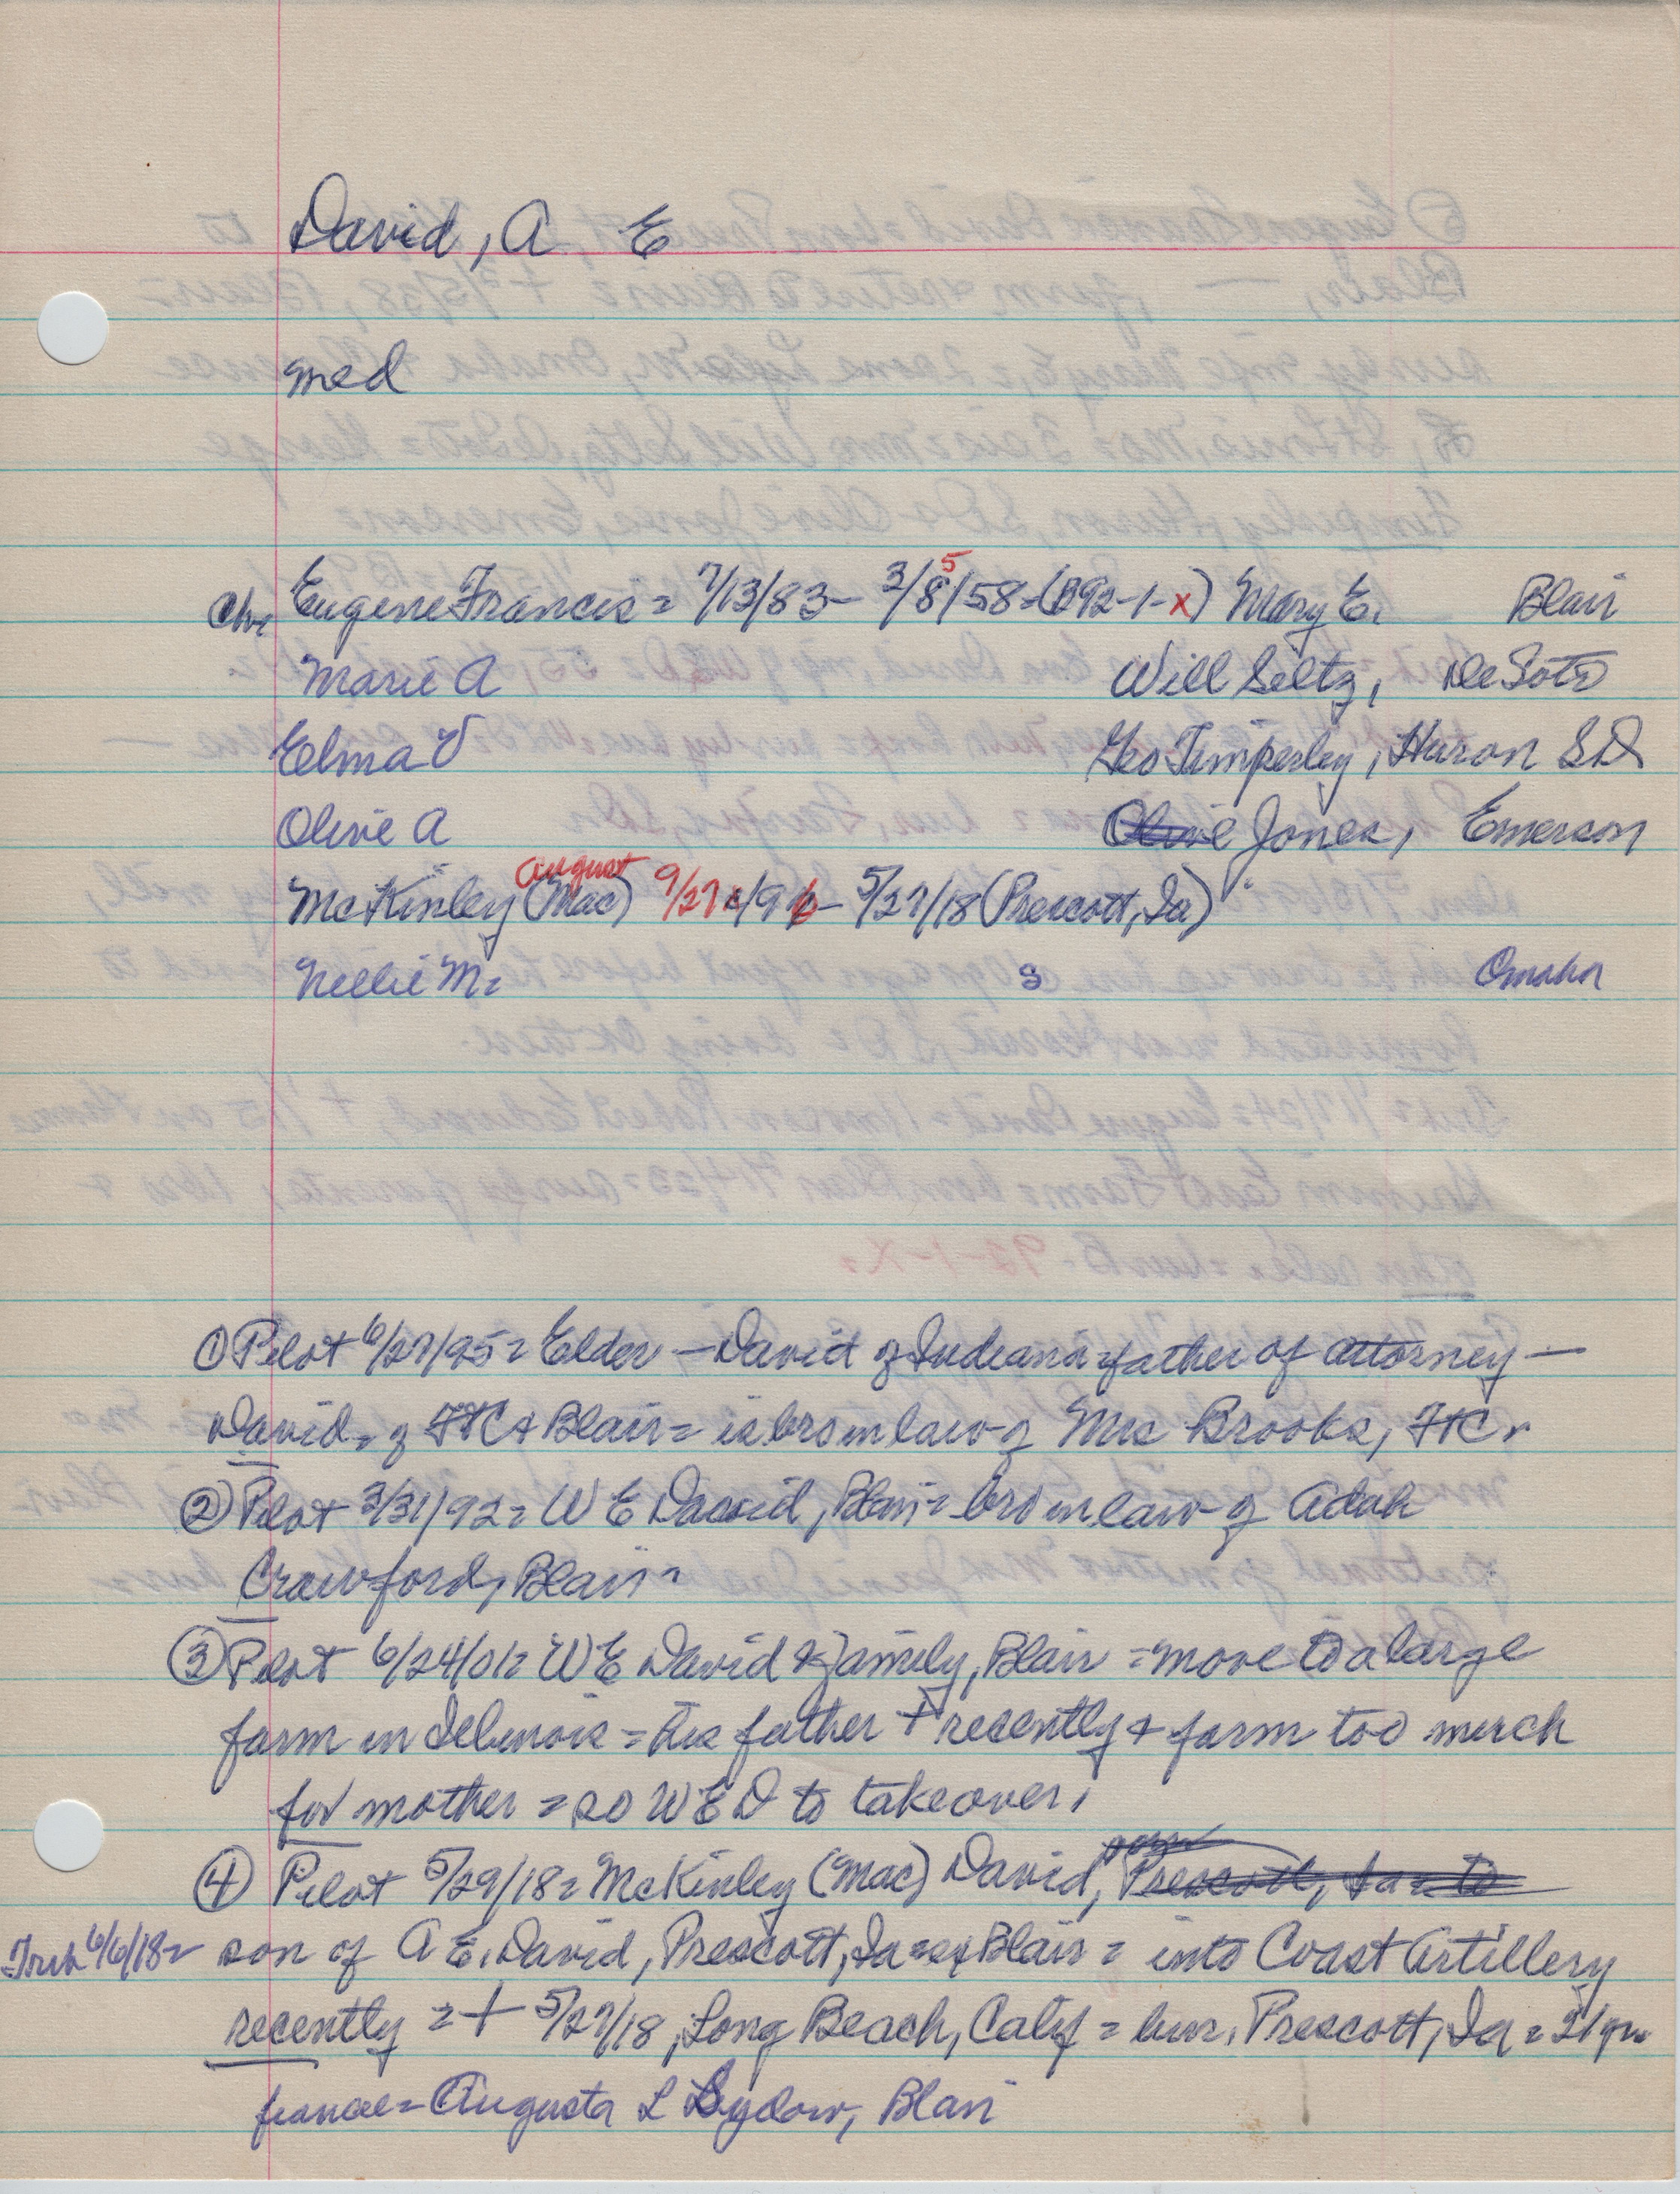 David, A E
med
Chr Eugene Francis = 7/13/83 - 3/8/58 = (B92-1-x) Mary E. Blair
5
Marie A Will Seltz, DeSoto
Elma V Geo Timperley, Huron SD
Olive A Olive Jones, Emerson
August
McKinley (Mac) 9/27/96 - 5/27/18 (Prescott, Ia)
Nellie M = S Omaha
① Pilot 6/27/95 = Elder — David of Indiana = father of attorney —
David = of FtC & Blair = is bro in law of Mrs Brooks, FtC =
② Pilot 3/31/92 = W E David, Blair = bro in law of Adah
Crawford, Blair =
③ Pilot 6/24/01 = W E David & family, Blair = move to a large
farm in Illinois = his father + recently & farm too much
for mother = so W E D to take over.
④ Pilot 5/29/18 = McKinley (Mac) David, Prescott, Ia = to
Trib 6/6/18 = son of A E. David, Prescott, Ia = ex Blair = into Coast Artillery
recently = + 5/27/18, Long Beach, Calif = bur. Prescott, Ia = 21 yr.
fiance = Augusta L Sydow, Blair